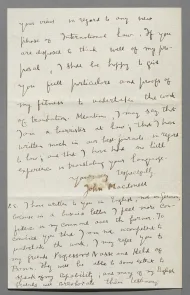 your views in regard to any new
phase of International Law. If you
are disposed to think well of my pro-
posal, I shall be happy to give
you full particulars and proofs of
my fitness to undertake the work
of translation. Meantime, I may say that
I am a barrister at law, that I have
written much in our best journals in regard
to law, and that I have had no little
experience in translating your language.
Yours very respectfully
John Macdonell
I have written to you in English, not in German,
because in a business letter I feel more con-
fidence in my own
convince you that I am not incompetent to
undertake the work, I may refer you to
my friends Professors and of
Bonn. They will be able to some extent to
speak of my capability, and many of my English
friends